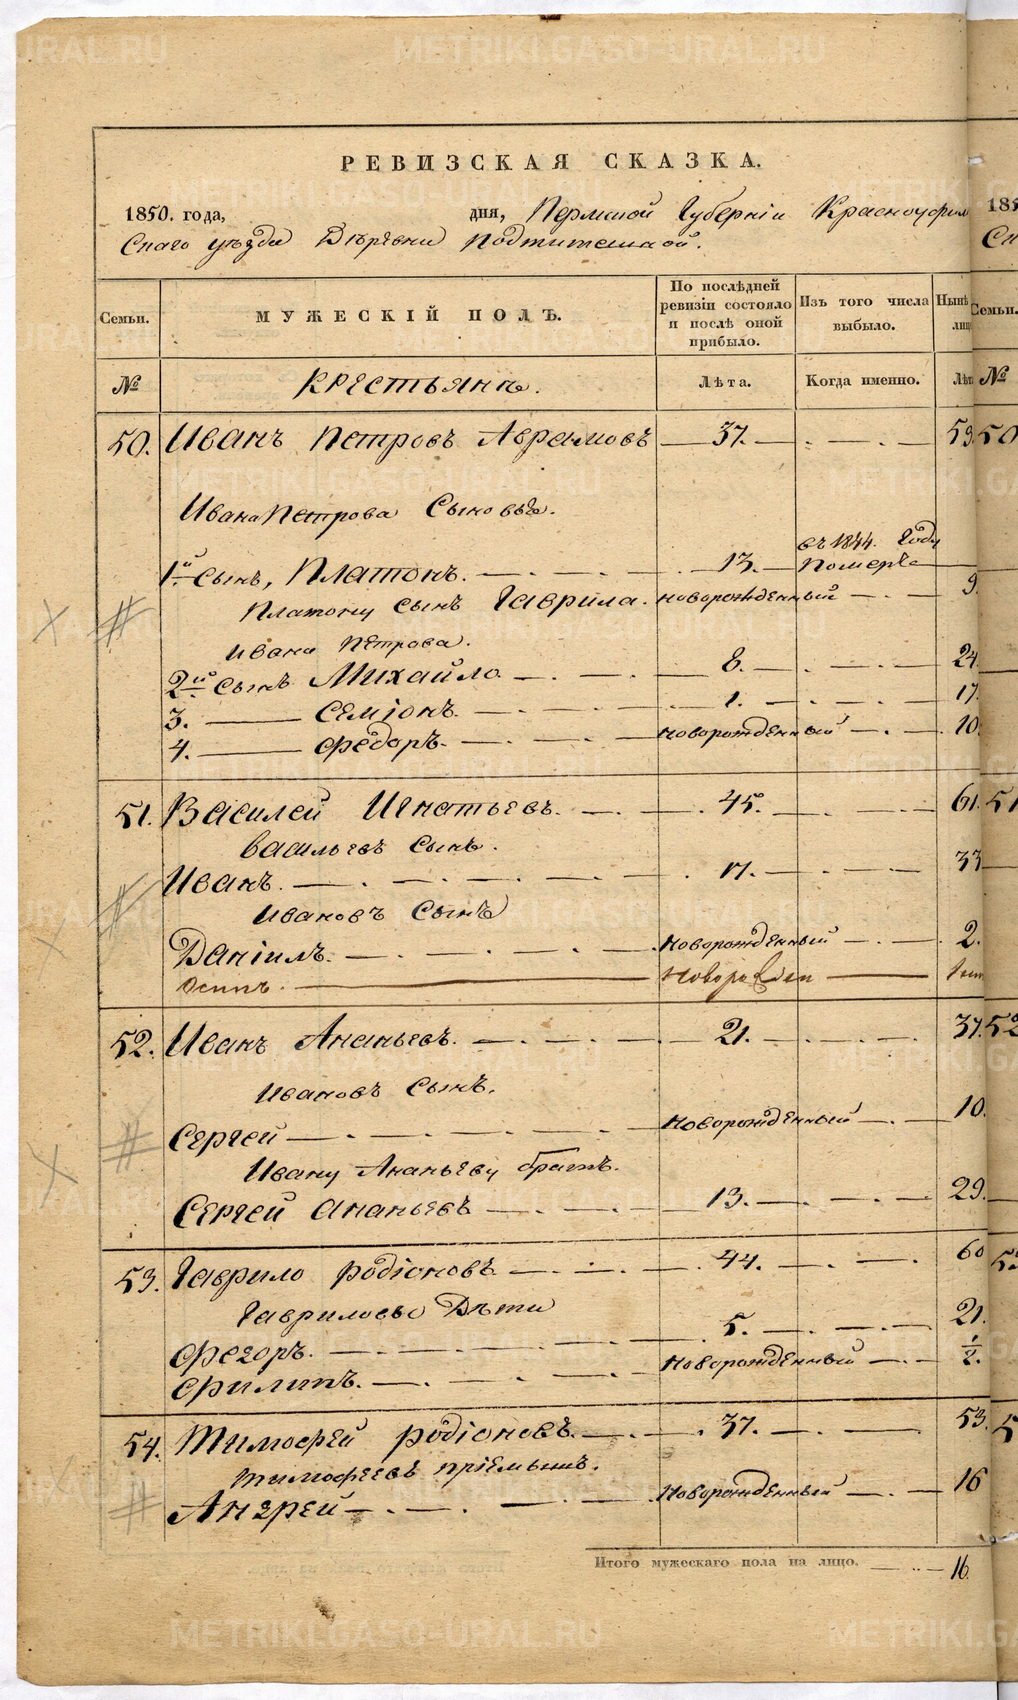 РЕВИЗСКАЯ СКАЗКА.
1850. года, дня, Пермской Губерніи Красноуфим
Скаго уезда Дѣревни Подтитешной.
Семьи. МУЖЕСКІЙ ПОЛЪ. По послѣдней ревизіи состояло и послѣ оной прибыло. Изъ того числа выбыло. Нынѣ
№ КРЕСТЬЯНЕ. Лѣта. Когда именно. Лѣт
50. Иванъ Петровъ Аврамовъ 37. 53
Ивана Петрова Сыновья.
въ 1844. Году
1й Сынъ, Платонъ. 13. Померъ
Платону сынъ Гаврила. новорожденный 9.
Ивана Петрова.
2й Сынъ Михайло 8. 24
3. Семіонъ. 1. 17.
4. Федоръ. новорожденный 10
51. Василей Игнатьевъ. 45. 61.
Васильевъ сынъ.
Иванъ. 17. 33
Ивановъ Сынъ
Даніилъ. Новорожденный 2.
Осипъ. Новорожден
52. Иванъ Ананьевъ. 21. 37.
Ивановъ сынъ.
Сергей Новорожденный 10.
Ивану Ананьеву братъ.
Сергей Ананьевъ 13. 29.
53. Гаврило родіоновъ. 44. 60
Гавриловы Дѣти
Федоръ. 5. 21.
Филипъ. Новорожденный 1/2.
54. Тимофей родіоновъ. 37. 53.
Тимофеевъ пріемышъ.
Андрей Новорожденный 16
Итого мужескаго пола на лицо. 16.